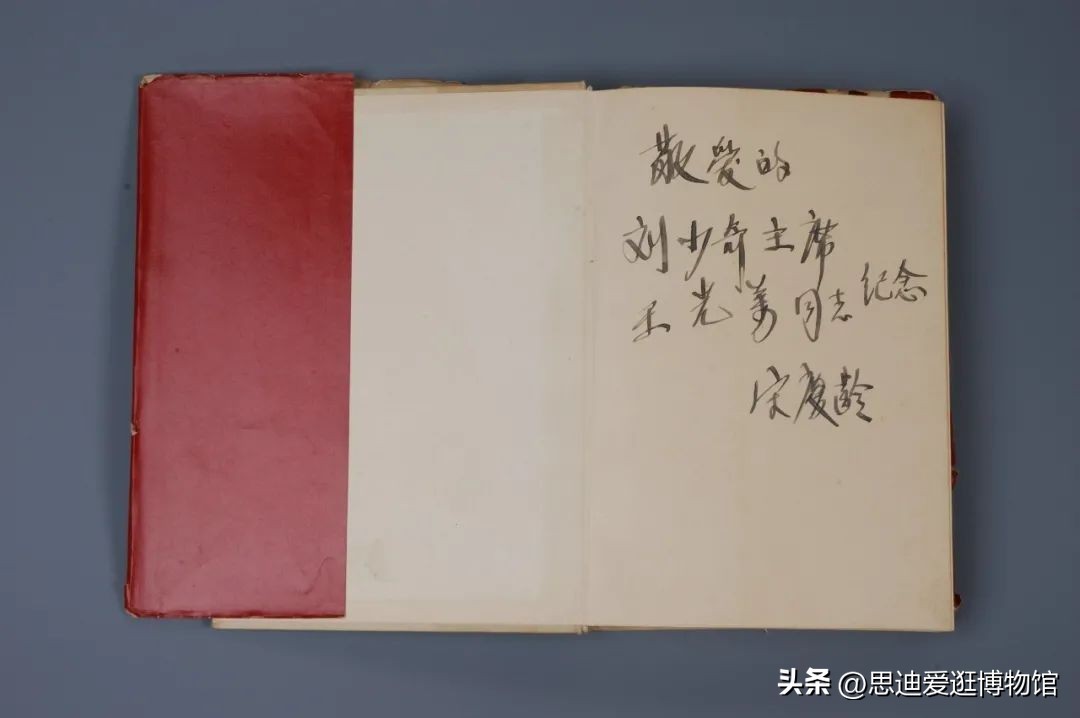 敬爱的
刘少奇主席
王光美同志纪念
宋庆龄
头条 @思迪爱逛博物馆